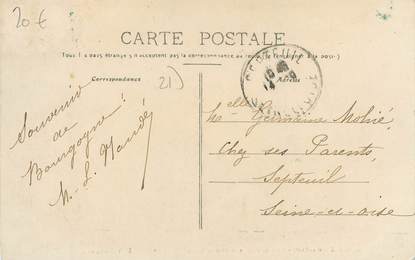 20 €
CARTE POSTALE
Tous les pays étrangers n'acceptent pas la correspondance au recto
Correspondance
Adresse
21)
SEPTEUIL
Souvenir
de
Bourgogne!
M. L.
Melle Germaine
chez ses Parents,
Septeuil
Seine-et-oise